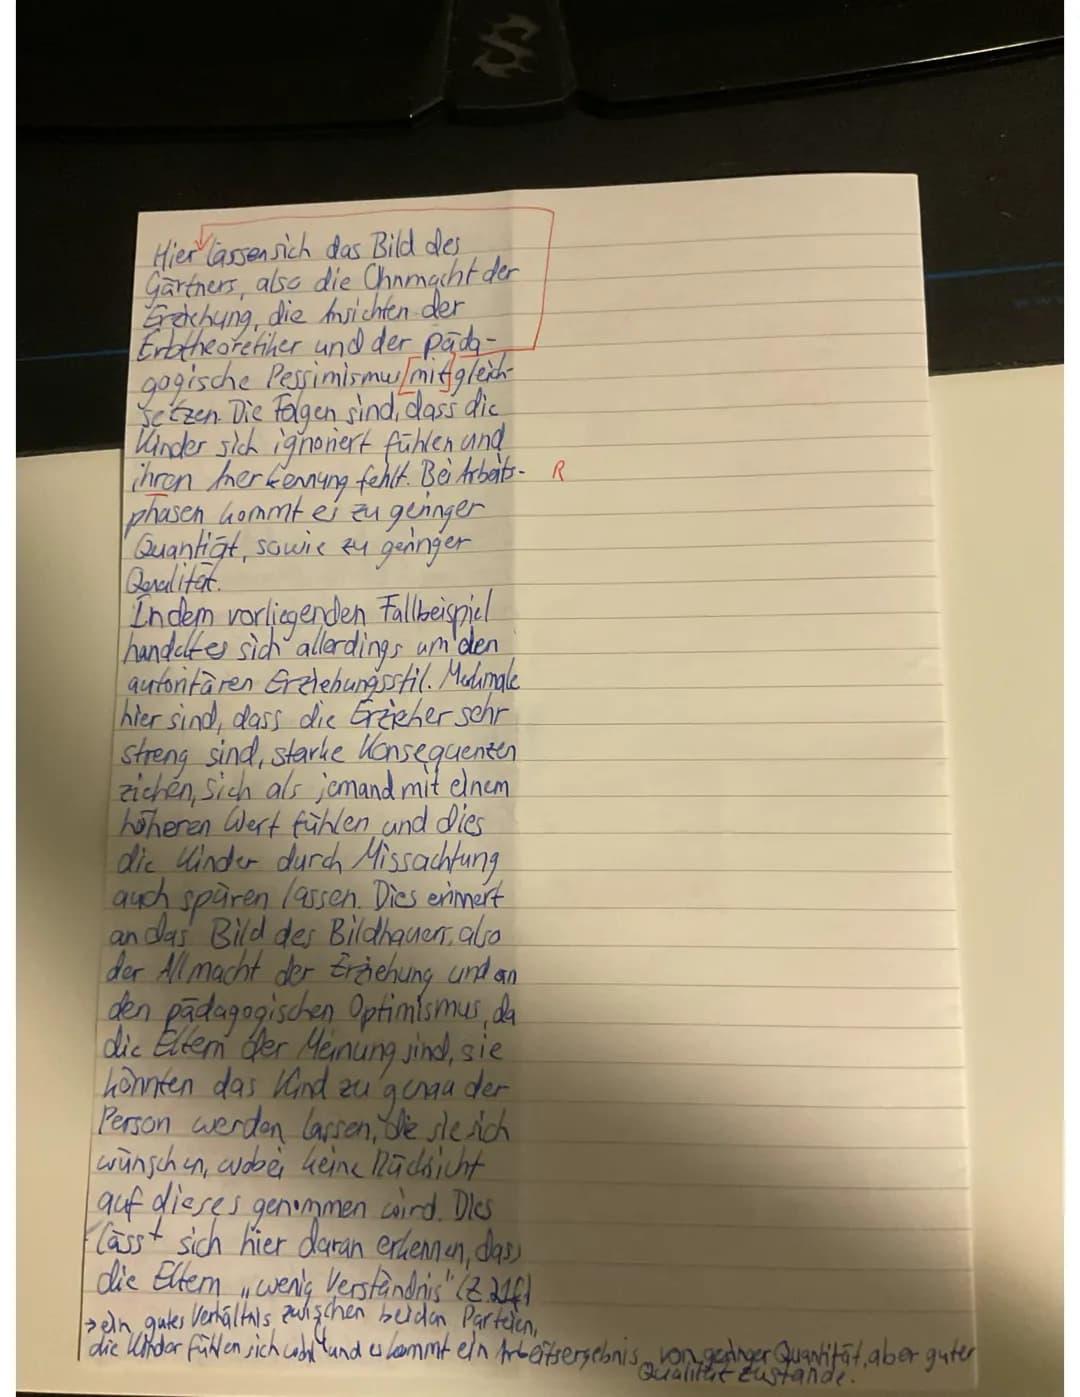 Hier lassen sich das Bild des
Gärtners, also die Ohnmacht der
Erziehung, die Ansichten der
Erbtheoretiker und der päda-
gogische Pessimismus mit gleich-
setzen. Die Folgen sind, dass die
Kinder sich ignoriert fühlen und
ihren Anerkennung fehlt. Bei Arbeits- R
phasen kommt es zu geringer
Quantität, sowie zu geringer
Qualität.
In dem vorliegenden Fallbeispiel
handelt es sich allerdings um den
autoritären Erziehungsstil. Merkmale
hier sind, dass die Erzieher sehr
streng sind, starke Konsequenzen
ziehen, sich als jemand mit einem
höheren Wert fühlen und dies
die Kinder durch Missachtung
auch spüren lassen. Dies erinnert
an das Bild des Bildhauers, also
der Allmacht der Erziehung und an
den pädagogischen Optimismus, da
die Eltern der Meinung sind, sie
könnten das Kind zu genau der
Person werden lassen, die sie sich
wünschen, wobei keine Rücksicht
auf dieses genommen wird. Dies
lässt sich hier daran erkennen, dass
die Eltern „wenig Verständnis" (Z.21f)
→ ein gutes Verhältnis zwischen beiden Parteien,
die Kinder fühlen sich wohl und es kommt ein Arbeitsergebnis von geringer Quantität, aber guter
Qualität zustande.